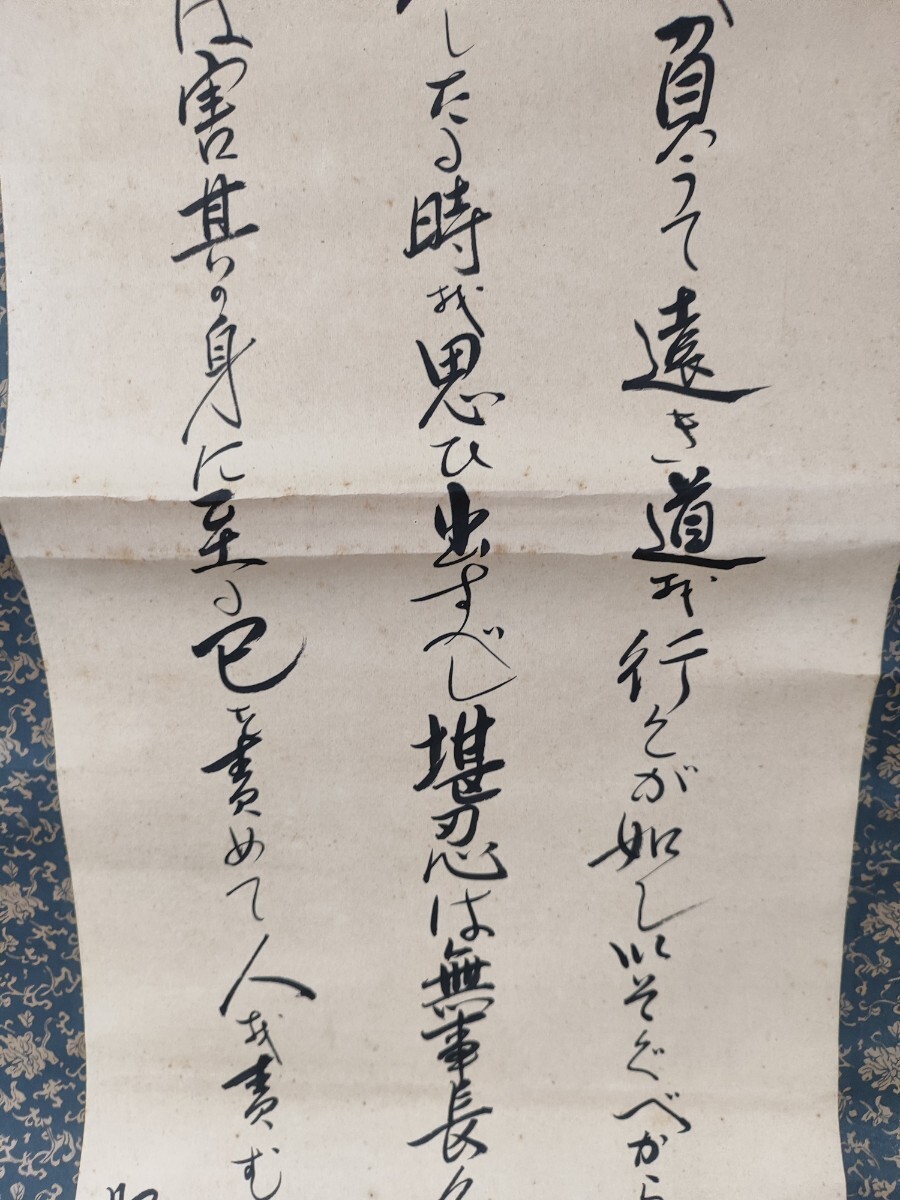 負うて遠き道を行くが如しいそぐべから
したる時を思ひ出すべし堪忍は無事長久
は害其の身に至る己を責めて人を責む